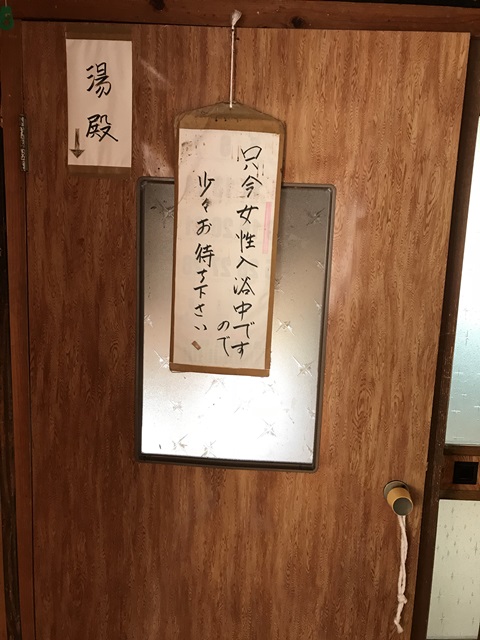 湯殿
↓
只今女性入浴中ですので
少々お待ち下さい